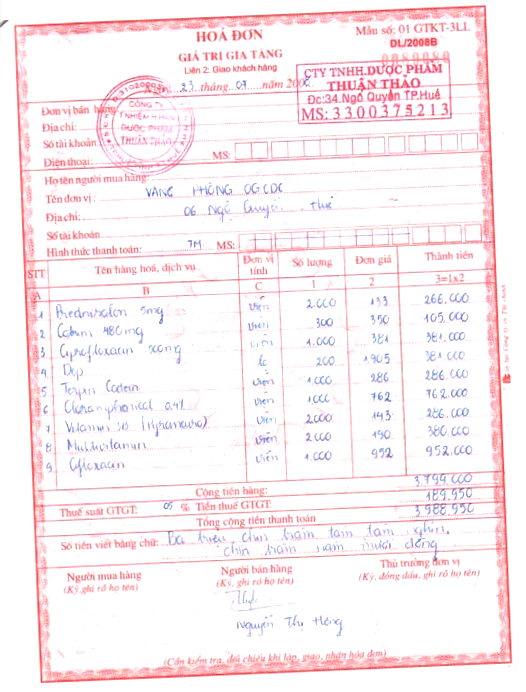 HOÁ ĐƠN
GIÁ TRỊ GIA TĂNG
Liên 2: Giao khách hàng
Mẫu số: 01 GTKT-3LL
DL/2008B
0089080
23 tháng 07 năm 2008
CTY TNHH.DƯỢC PHẨM
THUẬN THẢO
Đc:34.Ngô Quyền TP.Huế
MS: 3300375213
CÔNG TY
T.NHIỆM H.HẠN
DƯỢC PHẨM
THUẬN THẢO
Đơn vị bán hàng
Địa chỉ:
Số tài khoản
Điện thoại: MS:
Họ tên người mua hàng:
Tên đơn vị: VĂNG PHÒNG OGCDC
Địa chỉ: 06 Ngô Quyền Huế
Số tài khoản
Hình thức thanh toán: TM MS:
STT Tên hàng hoá, dịch vụ Đơn vị tính Số lượng Đơn giá Thành tiền
A B C 1 2 3=1x2
1 Prednisolon 5mg Viên 2.000 133 266.000
2 480mg Viên 300 350 105.000
3 Ciprofloxacin 500mg Viên 1.000 381 381.000
4 Dep Lọ 200 1905 381.000
5 Terpin Codein Viên 1000 286 286.000
6 Cloramphenicol 0,4% Viên 1000 762 762.000
7 Vitamin Viên 2000 143 286.000
8 Multivitamin Viên 2000 190 380.000
9 Ofloxacin Viên 1.000 952 952.000
Cộng tiền hàng: 3.799.000
Thuế suất GTGT: 05 % Tiền thuế GTGT: 189.950
Tổng cộng tiền thanh toán 3.988.950
Số tiền viết bằng chữ: Ba triệu, chín trăm tám tám nghìn,
chín trăm năm mươi đồng
Người mua hàng Người bán hàng Thủ trưởng đơn vị
(Ký, ghi rõ họ tên) (Ký, ghi rõ họ tên) (Ký, đóng dấu, ghi rõ họ tên)
Nguyễn Thị Hồng
(Cần kiểm tra, đối chiếu khi lập, giao, nhận hóa đơn)